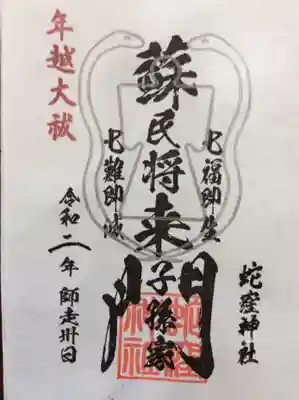 年越大祓
七福即生
蘇民将来子孫家門
七難即滅
蛇窪神社
令和二年師走卅日